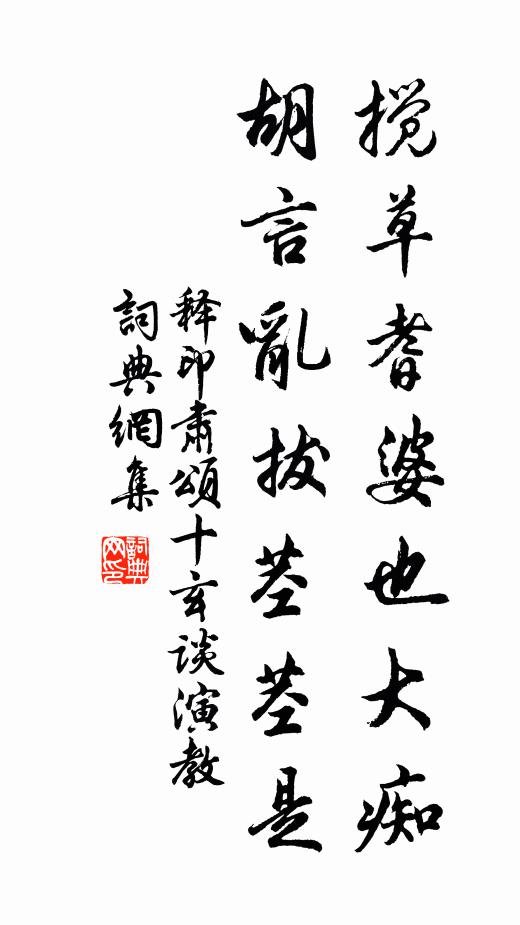 搅草耆婆也大痴
胡言亂拔茎茎是
释印肃頌十玄谈演教
詞典網集
詞典網印